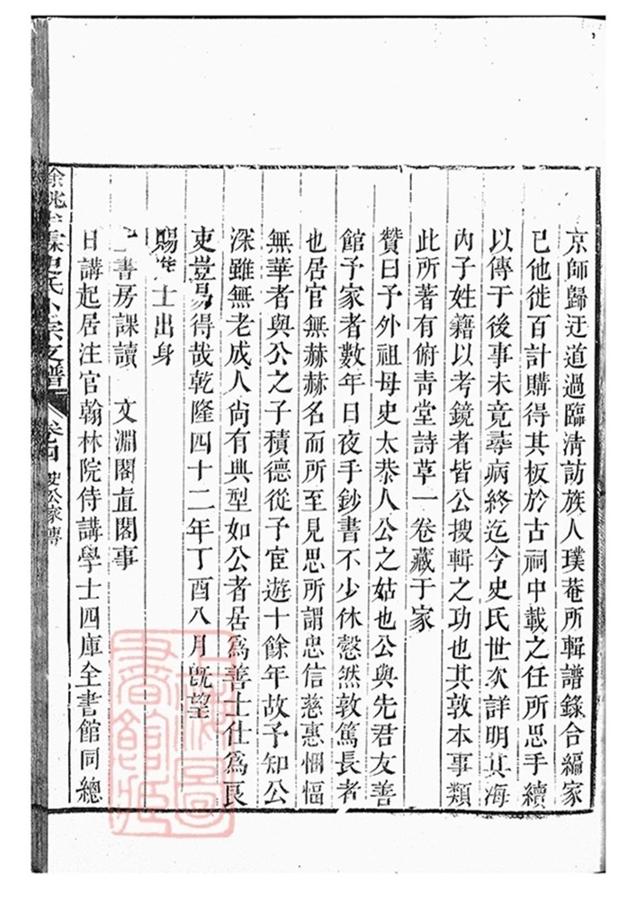 京師歸迂道過臨淸訪族人璞菴所輯譜錄合編家
已他徙百計購得其板於古祠中載之任所思手續
以傳于後事未竟尋病終迄今史氏世次詳明其海
內子姓籍以考鏡者皆公搜輯之功也其敦本事類
此所著有俯青堂詩草一卷藏于家
贊曰予外祖母史太恭人公之姑也公與先君友善
館予家者數年日夜手鈔書不少休慤然敦篤長者
也居官無赫赫名而所至見思所謂忠信慈惠悃愊
無華者與公之子積德從子宦遊十餘年故予知公
深雖無老成人尙有典型如公者居爲善士仕爲良
吏豈易得哉乾隆四十二年丁酉八月旣望
賜進士出身
書房課讀 文淵閣直閣事
日講起居注官翰林院侍講學士四庫全書館同總
余姚 史氏小宗支譜 卷四 公家傳
上海圖書館藏